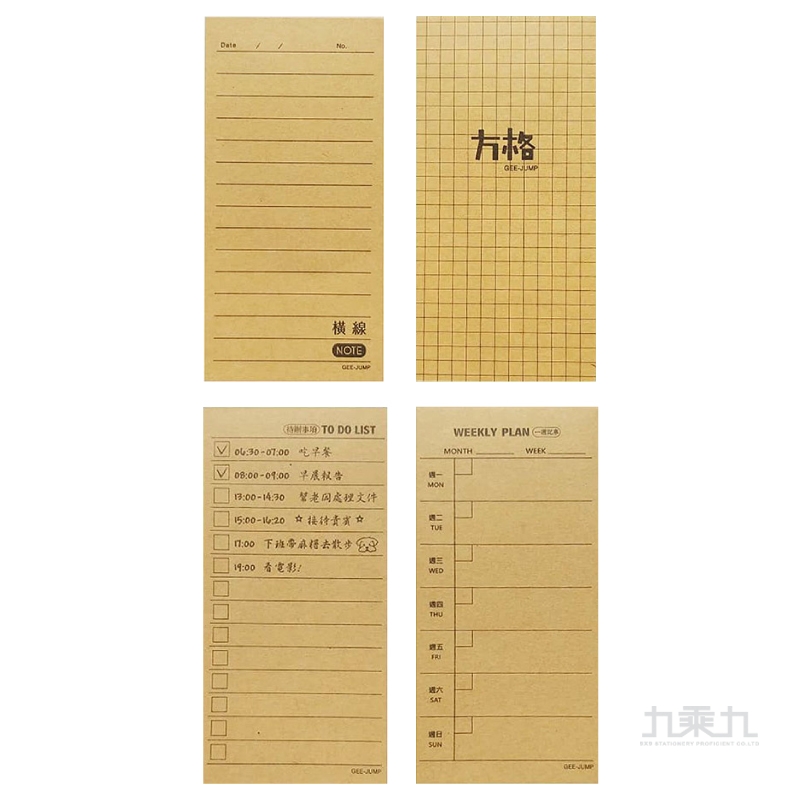 Date / / No.
橫線
NOTE
GEE-JUMP
方格
GEE-JUMP
待辦事項 TO DO LIST
06:30-07:00 吃早餐
08:00-09:00 早晨報告
13:00-14:30 幫老闆處理文件
15:00-16:20 ☆接待貴賓☆
17:00 下班帶麻糬去散步
19:00 看電影!
GEE-JUMP
WEEKLY PLAN 一週記事
MONTH WEEK
週一
MON
週二
TUE
週三
WED
週四
THU
週五
FRI
週六
SAT
週日
SUN
GEE-JUMP
九乘九
9X9 STATIONERY PROFICIENT CO.LTD